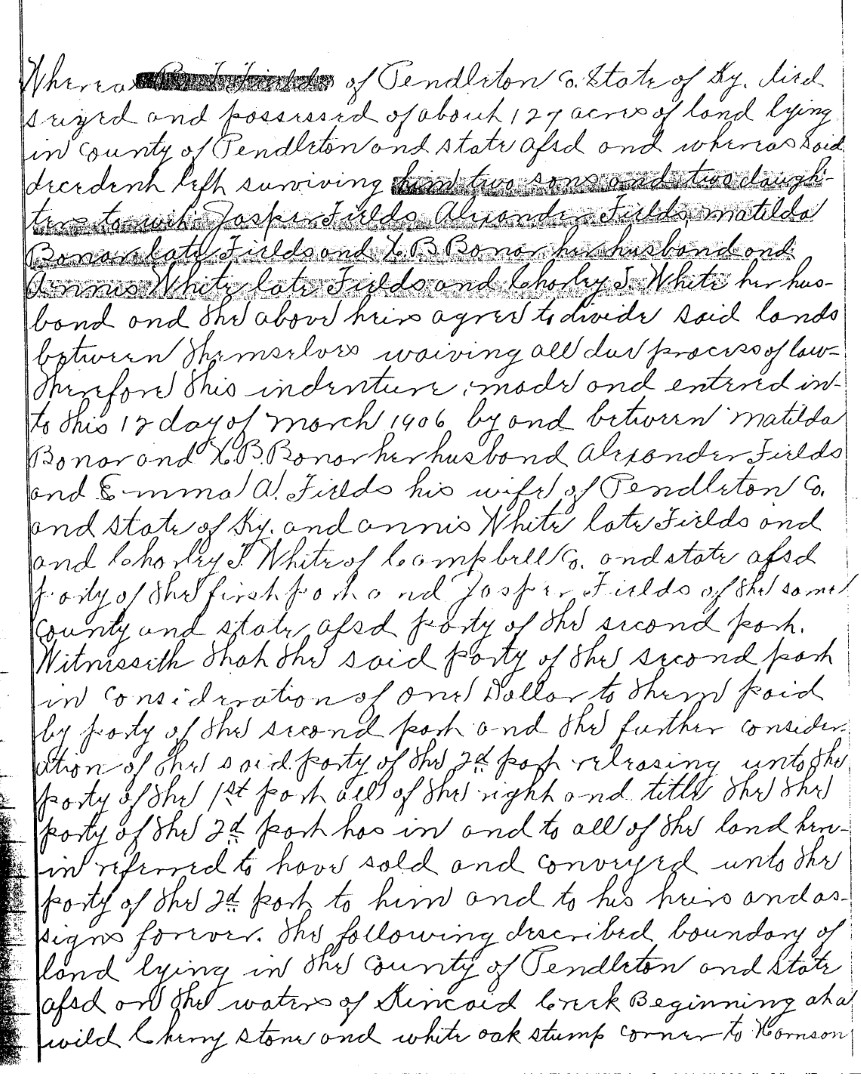 Whereas B. T. Fields of Pendleton Co. State of Ky. died
seized and possessed of about 127 acres of land lying
in County of Pendleton and state afsd and whereas said
decedent left surviving him two sons and two daugh-
ters to wit. Jasper Fields, Alexander Fields, Matilda
Bonar late Fields and X. B. Bonar her husband and
Annis White late Fields and Charley T. White her hus-
band and the above heirs agree to divide said lands
between themselves waiving all due process of law-
Therefore this indenture, made and entered in-
to this 12 day of March 1906 by and between Matilda
Bonar and X. B. Bonar her husband Alexander Fields
and Emma A. Fields his wife of Pendleton Co.
and State of Ky. and Annis White late Fields and
and Charley T. White of Campbell Co. and state afsd
party of the first part and Jasper Fields of the same
County and state afsd party of the second part.
Witnesseth that the said party of the second part
in consideration of one Dollar to them paid
by party of the second part and the further consider-
ation of the said party of the 2d part releasing unto the
party of the 1st part all of the right and title the the
party of the 2d part has in and to all of the land here-
in referred to have sold and conveyed unto the
party of the 2d part to him and to his heirs and as-
signs forever. the following described boundary of
land lying in the County of Pendleton and state
afsd on the waters of Kincaid Creek Beginning at a
wild Cherry stone and white oak stump corner to